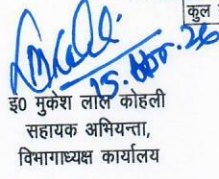 कुल
15. Apr. 26
इ0 मुकेश लाल कोहली
सहायक अभियन्ता,
विभागाध्यक्ष कार्यालय